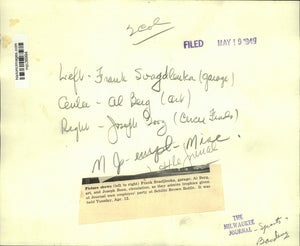 2 col
FILED MAY 19 1949
Left - Frank (garage)
Center - Al Berg (art)
Right - Joseph
M J - empl - Misc.
Picture shows (left to right) Frank garage, Al Berg,
art, and Joseph circulation, as they admire trophies given
at Journal men employes' party at Schlitz Brown Bottle. It was
held Tuesday, Apr. 12.
THE
MILWAUKEE
JOURNAL - Sports -